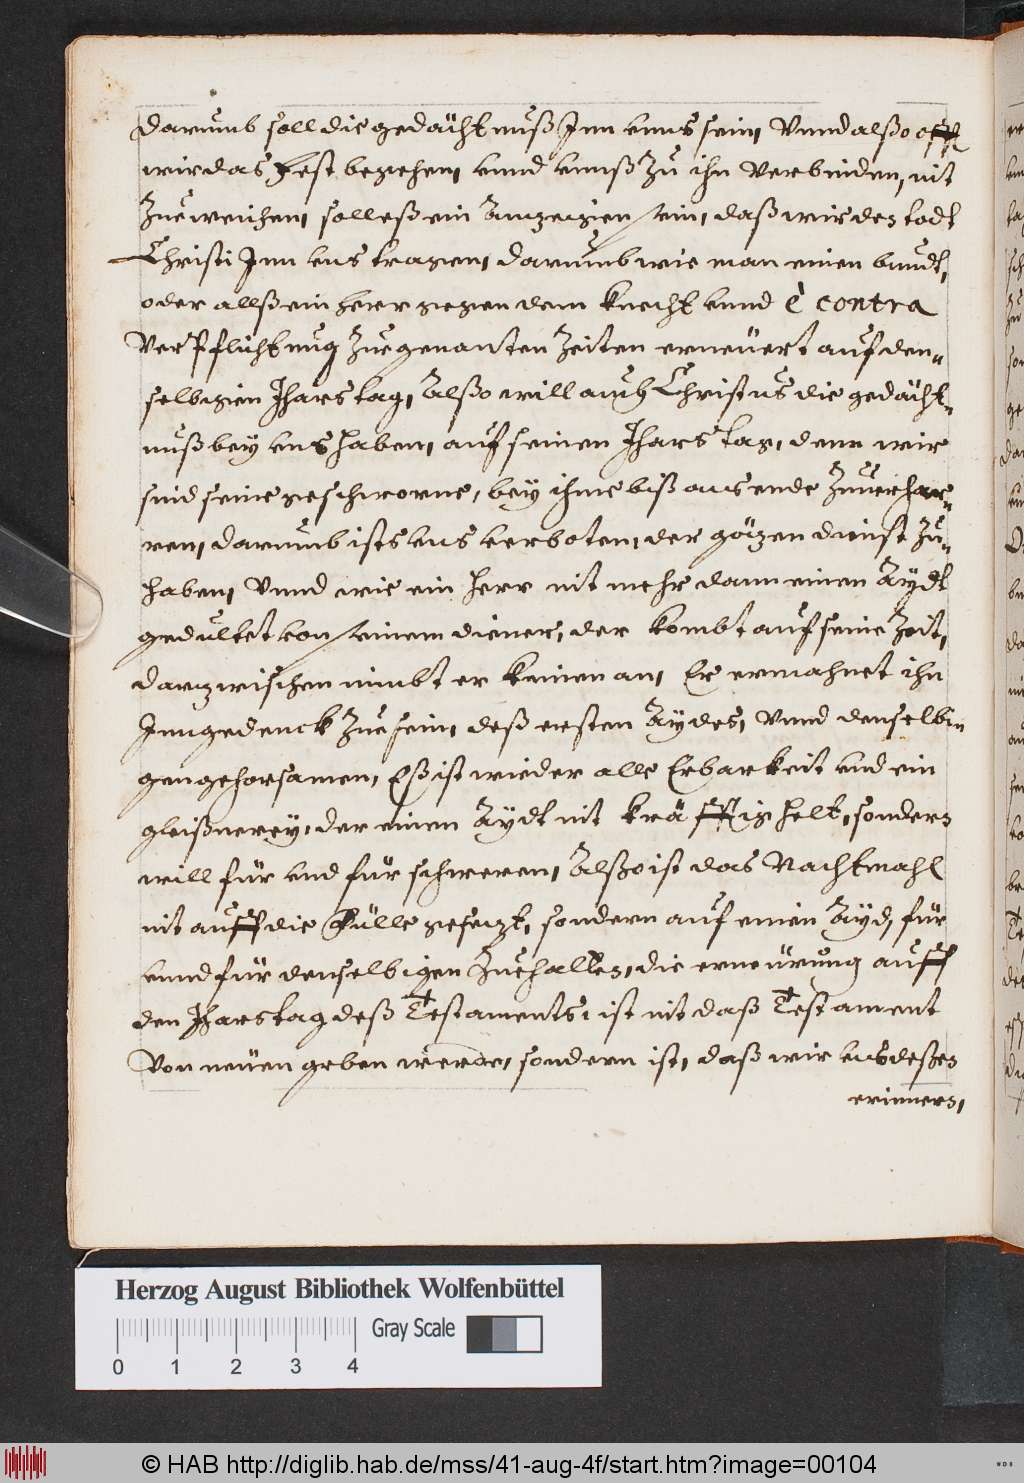 darumb soll die gedächtnuß Inn vnns sein, Vnnd alßo offt
wir das Fest begehen, vnnd vnnß zu ihn Verbinden, nit
zue weichen, soll eß ein Anzeigen sein, daß wir den todt
Christi Inn vns tragen, darumb wie man einen bundt,
oder allß ein Herr gegen dem knecht vnnd è contra
Verpflichtung zue genanten Zeiten erneüert auf den-
selbigen Jharstag, Alßo will auch Christus die gedächt-
nuß bey vns haben, auf seinen Jharstag, denn wir
sind seine geschworne, bey ihme biß ans ende Zuuerhar-
ren, darumb ists vns verboten, der götzen dienst zu-
haben, Vnnd wie ein Herr nit mehr dann einen Aydt
gedultet von seinem diener, der kombt auf seine Zeit,
darzwischen nimbt er keinen an, Er ermahnet ihn
Inngedenck zue sein, deß ersten Aydes, Vnnd denselbi-
gen gehorsamen, Eß ist wieder alle Erbarkeit vnd ein
gleißnerey, der einen Aydt nit kräfftig helt, sondern
will für vnd für schweren, Alßo ist das Nachtmahl
nit auff die Fülle gesezt, sondern auf einen Ayd, für
vnnd für denselbigen Zuehallten, die erneürung auff
den Jharstag deß Testaments, ist nit daß Testament
Von neüen geben werde, sondern ist, daß wir vns deßen
erinnern,
Herzog August Bibliothek Wolfenbüttel
Gray Scale
0 1 2 3 4
© HAB http://diglib.hab.de/mss/41-aug-4f/start.htm?image=00104